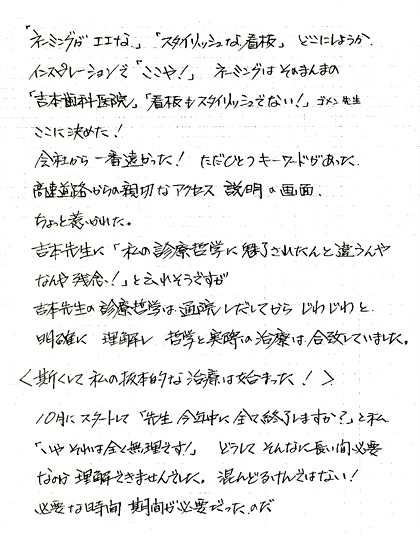 「ネーミングがエエな。」「スタイリッシュな看板」どこにしようか.
インスピレーションで「ここや!」 ネーミングはそのまんまの
「吉本歯科医院」「看板もスタイリッシュでない!」ゴメン先生
ここに決めた!
会社から一番遠かった! ただひとつキーワードがあった.
高速道路からの親切なアクセス 説明の画面.
ちょっと惹かれた。
吉本先生に「私の診療哲学に魅了されたんと違うんや
なんや残念!」と云われそうですが
吉本先生の診療哲学は通院しだしてから じわじわと
明確に 理解し 哲学と実際の治療は合致していました。
<斯くして私の抜本的な治療は始まった!>
10月にスタートして「先生 今年中に全て終了しますか?」と私
「いや それは全く無理です!」 どうして そんなに長い間必要
なのか 理解できませんでした。混んどるけんではない!
必要な時間 期間が必要だったのだ